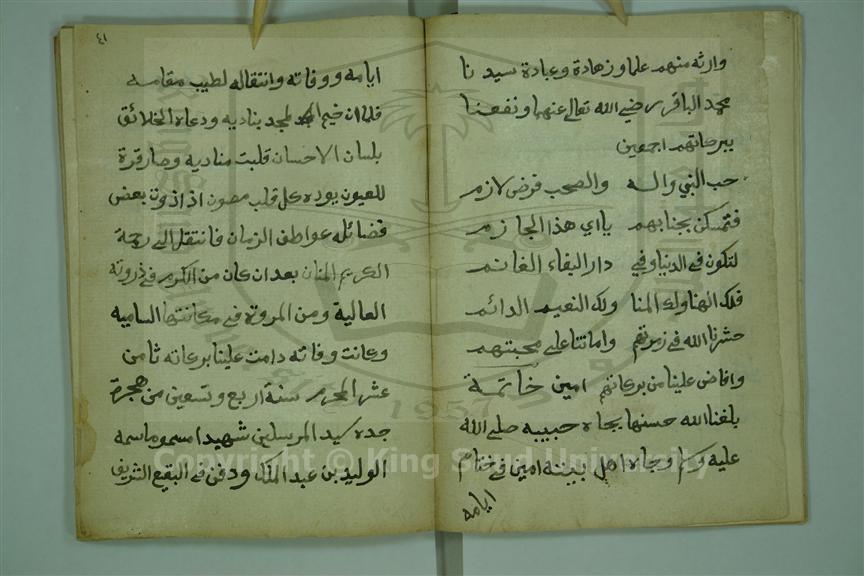 وارثه منهم علما وزهادة وعبادة سيدنا
محمد الباقر رضي الله تعالى عنهما ونفعنا
ببركاتهم اجمعين
حب النبي واله والصحب فرض لازم
فتمسكن بجنابهم يااي هذا الجازم
لتكون في الدنيا وفي دار البقاء الغانم
فلك الهنا ولك المنا ولك النعيم الدائم
حشرنا الله في زمرتهم واماتنا على محبتهم
وافاض علينا من بركاتهم امين خاتمة
بلغنا الله حسنها بجاه حبيبه صلى الله
عليه وسلم وجاه اهل بيته امين في ختام
ايامه
٤١
ايامه ووفاته وانتقاله لطيب مقامه
فلما ان خيم المجد بناديه ودعاه الخلائق
بلسان الاحسان قلبت مناديه وصار قرة
للعيون يوده كل قلب مصون اذ اذوت بعض
فضائله عواطف الزمان فانتقل الى رحمة
الكريم المنان بعد ان كان من الكرم في ذروته
العالية ومن المروة في مكانتها الساميه
وكانت وفاته دامت علينا بركاته ثامن
عشر المحرم سنة اربع وتسعين من هجرة
جده سيد المرسلين شهيدا مسموما سمه
الوليد بن عبد الملك ودفن في البقيع الشريف
Copyright © King Saud University
1957